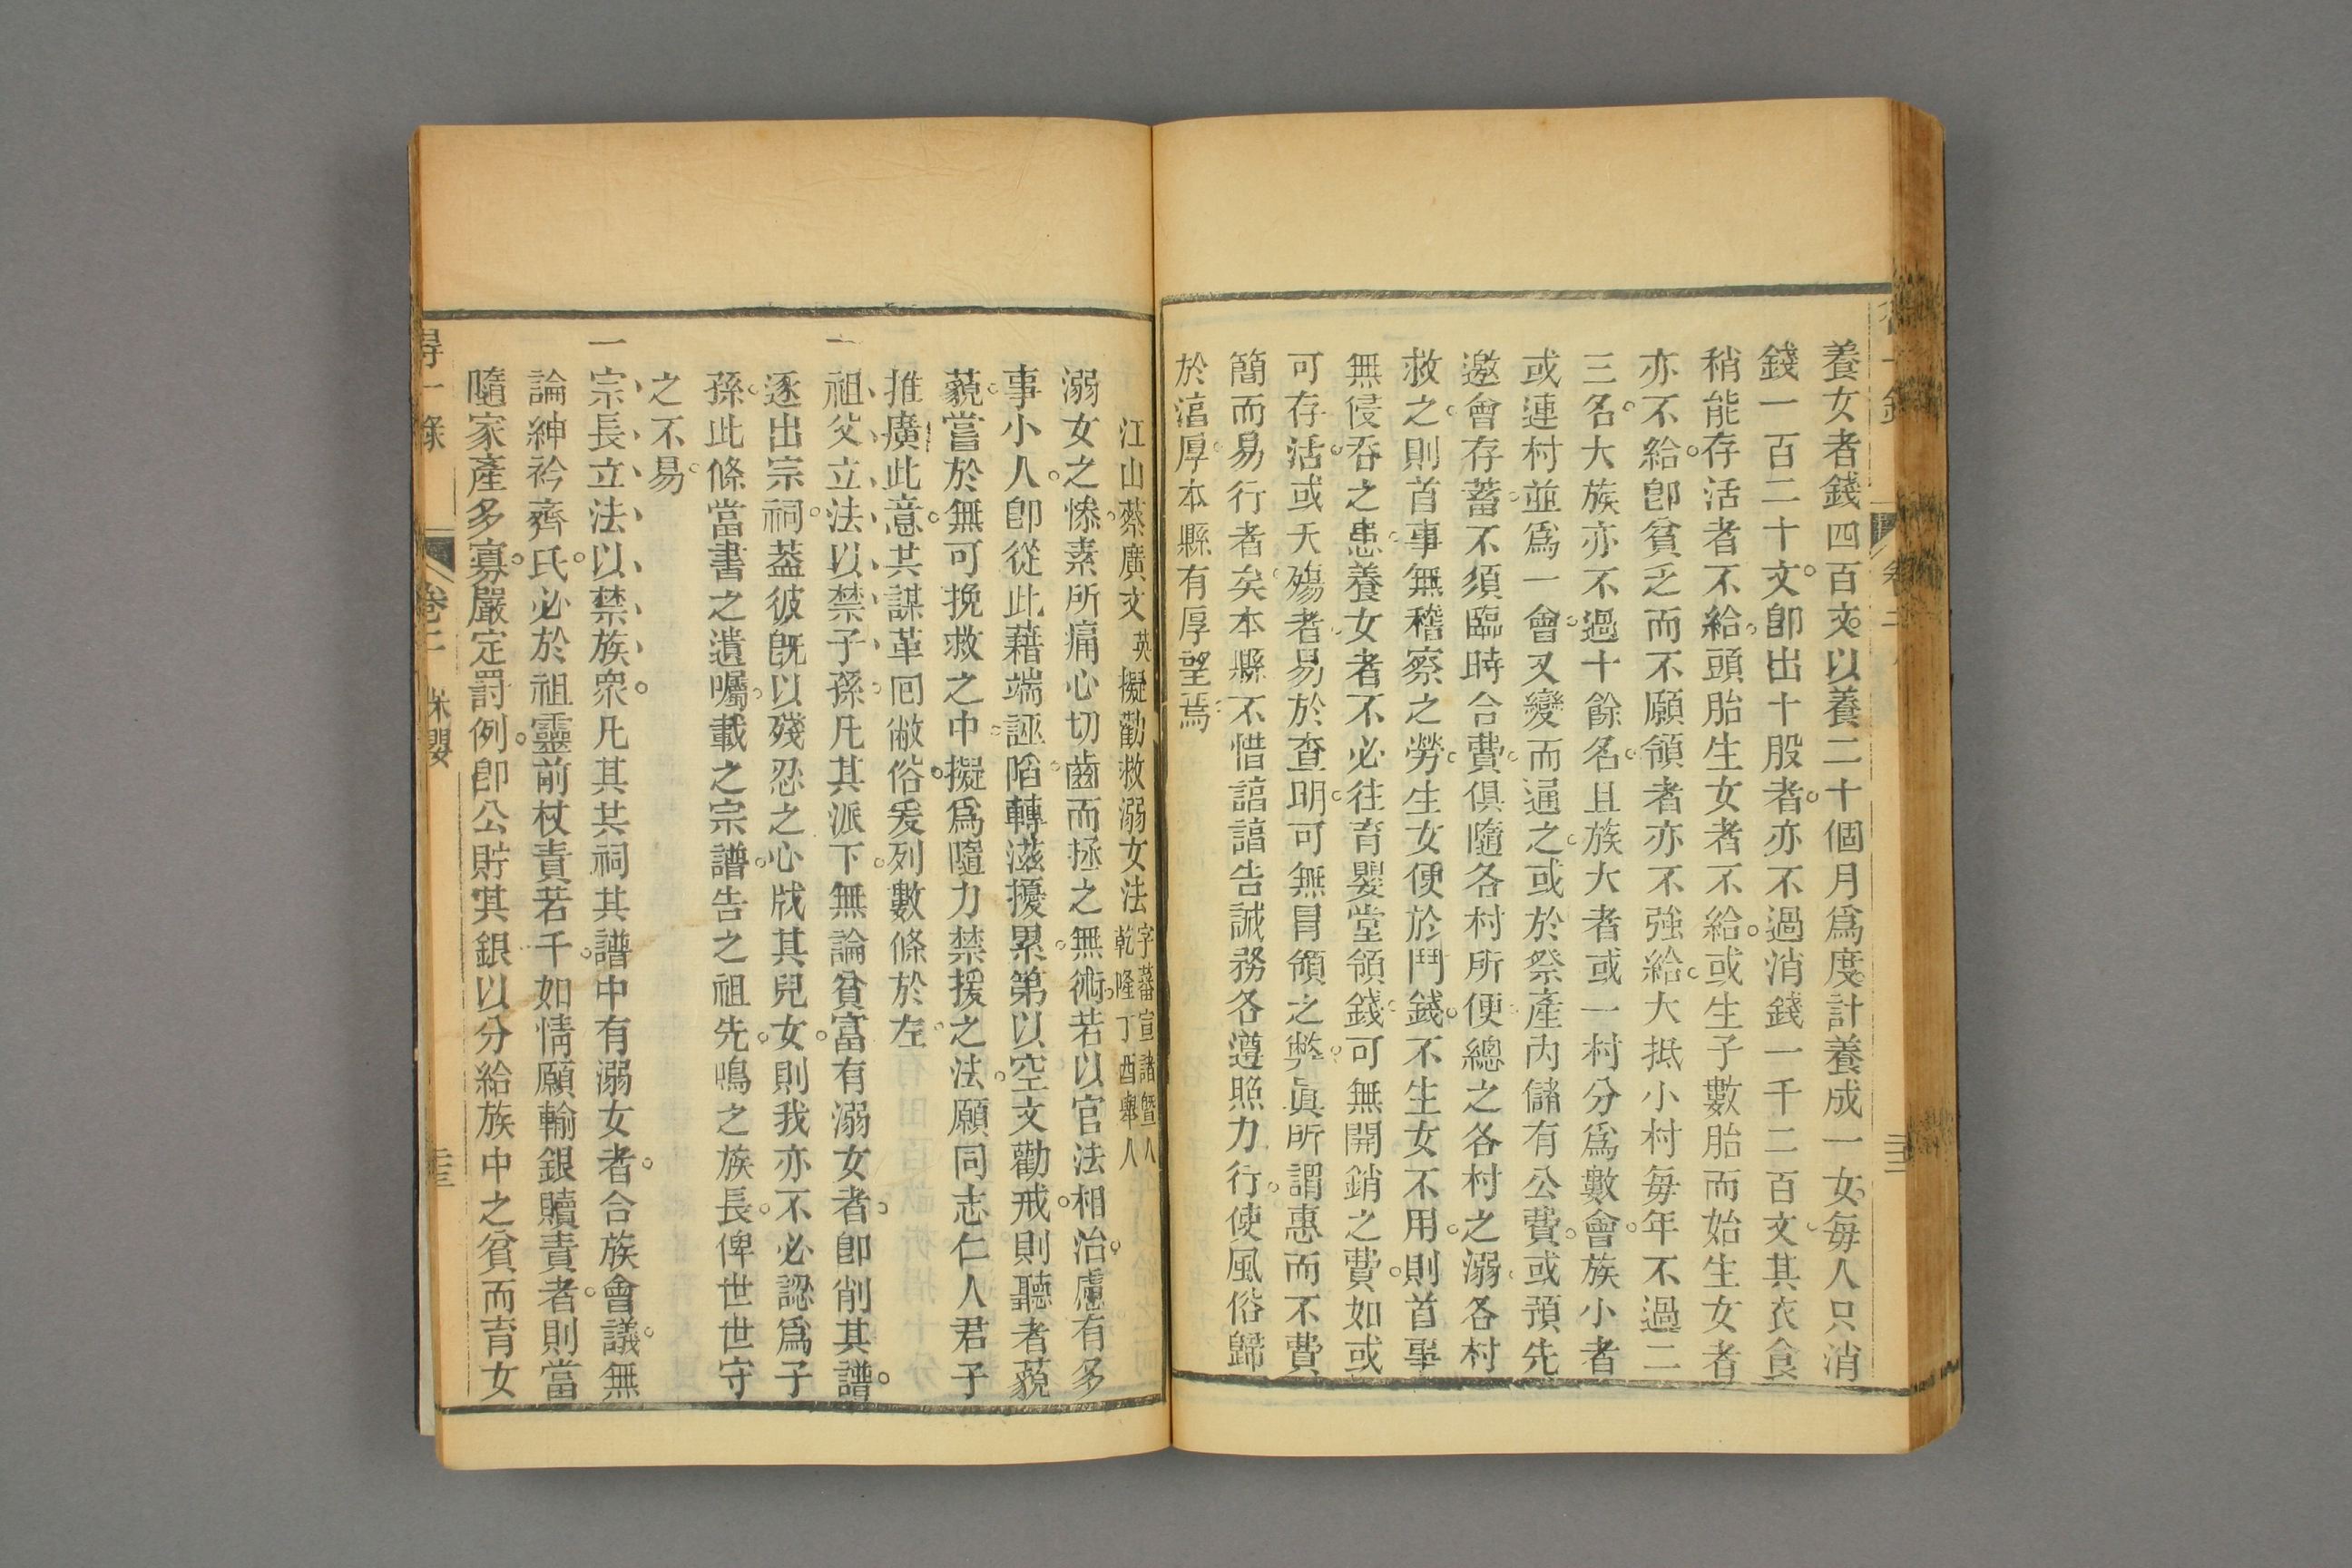 養女者錢四百文。以養二十個月爲度。計養成一女。每人只消
錢一百二十文。卽出十股者。亦不過消錢一千二百文。其衣食
稍能存活者不給。頭胎生女者不給。或生子數胎而始生女者
亦不給。卽貧乏而不願領者亦不強給。大抵小村每年不過二
三名。大族亦不過十餘名。且族大者或一村分爲數會。族小者
或連村並爲一會。又變而通之。或於祭產內儲有公費。或預先
邀會存蓄。不須臨時合費。俱隨各村所便。總之各村之溺。各村
救之。則首事無稽察之勞。生女便於鬥錢。不生女不用。則首事
無侵吞之患。養女者不必往育嬰堂領錢。可無開銷之費。如或
可存活。或夭殤者。易於查明。可無冒領之弊。眞所謂惠而不費
簡而易行者矣。本縣不惜諄諄告誡。務各遵照力行。使風俗歸
於湻厚。本縣有厚望焉。
江山蔡廣文英擬勸救溺女法字蕃宣諸曁人乾隆丁酉舉人
溺女之慘。素所痛心切齒。而拯之無術。若以官法相治。慮有多
事小人。卽從此藉端誣陷。轉滋擾累。第以空文勸戒。則聽者藐
藐。嘗於無可挽救之中。擬爲隨力禁援之法。願同志仁人君子
推廣此意。共謀革囘敝俗。爰列數條於左。
一祖父立法以禁子孫。凡其派下。無論貧富。有溺女者。卽削其譜。
逐出宗祠。葢彼旣以殘忍之心戕其兒女。則我亦不必認爲子
孫。此條當書之遺囑。載之宗譜。告之祖先。鳴之族長。俾世世守
之不易。
一宗長立法以禁族衆。凡其共祠共譜中有溺女者。合族會議。無
論紳衿齊氏。必於祖靈前杖責若干。如情願輸銀贖責者。則當
隨家產多寡。嚴定罰例。卽公貯其銀。以分給族中之貧而育女
得一錄
卷二
保嬰